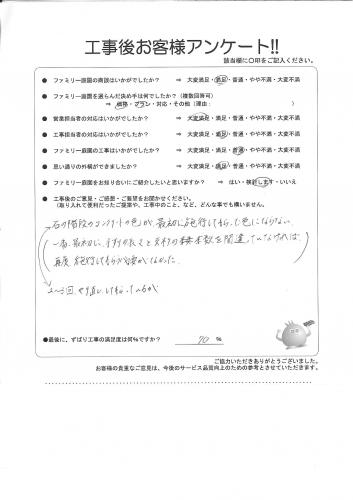 工事後お客様アンケート!!
該当欄に〇印をご記入ください。
● ファミリー庭園の商談はいかがでしたか？ ⇒ 大変満足・満足・普通・やや不満・大変不満
● ファミリー庭園を選らんだ決め手は何でしたか？（複数回答可）
⇒ 価格・プラン・対応・その他（理由： ）
● 営業担当者の対応はいかがでしたか？ ⇒ 大変満足・満足・普通・やや不満・大変不満
● 工事担当者の対応はいかがでしたか？ ⇒ 大変満足・満足・普通・やや不満・大変不満
● ファミリー庭園の工事はいかがでしたか？ ⇒ 大変満足・満足・普通・やや不満・大変不満
● 思い通りの外構ができましたか？ ⇒ 大変満足・満足・普通・やや不満・大変不満
● ファミリー庭園をお知り合いにご紹介したいと思いますか？ ⇒ はい・検討します・いいえ
● 工事後のご意見・ご感想・ご要望をお聞かせください。
（取り入れて便利だったご提案や、工事中のこと、など、どんな事でも構いません。
石の階段のコンクートの色が、最初に施行してもらった色にならない
一番最初に、手すりの長さと本数を間違っていなければ
再度 施行してもらう必要がなかった。
2〜3回 やり直ししてもらっている
●最後に、ずばり工事の満足度は何％ですか？ 70 ％
ご協力いただきありがとうございました。
お客様の貴重なご意見は、今後のサービス品質向上のための参考とさせていただきます。